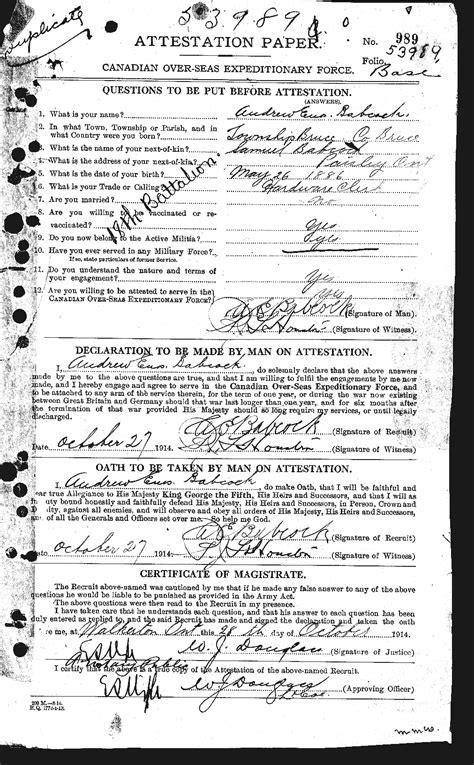 Duplicate
53989
ATTESTATION PAPER.
No. 989
53989
Folio.
Base
CANADIAN OVER-SEAS EXPEDITIONARY FORCE.
QUESTIONS TO BE PUT BEFORE ATTESTATION.
(ANSWERS)
1. What is your name? Andrew Enos. Babcock.
2. In what Town, Township or Parish, and in
what Country were you born? Township Bruce Co Bruce
3. What is the name of your next-of-kin? Samuel Babcock
4. What is the address of your next-of-kin? Paisley Ont
5. What is the date of your birth? May 26 1886
6. What is your Trade or Calling? Hardware Clerk
7. Are you married? No
8. Are you willing to be vaccinated or re-
vaccinated? Yes
9. Do you now belong to the Active Militia? Yes
10. Have you ever served in any Military Force?
If so, state particulars of former Service.
11. Do you understand the nature and terms of
your engagement? Yes
12. Are you willing to be attested to serve in the
CANADIAN OVER-SEAS EXPEDITIONARY FORCE? Yes
18th Battalion.
A E Babcock (Signature of Man)
Houston (Signature of Witness)
DECLARATION TO BE MADE BY MAN ON ATTESTATION.
I, Andrew Enos. Babcock, do solemnly declare that the above answers
made by me to the above questions are true, and that I am willing to fulfil the engagements by me now
made, and I hereby engage and agree to serve in the Canadian Over-Seas Expeditionary Force, and
to be attached to any arm of the service therein, for the term of one year, or during the war now existing
between Great Britain and Germany should that war last longer than one year, and for six months after
the termination of that war provided His Majesty should so long require my services, or until legally
discharged.
A E Babcock (Signature of Recruit)
Date October 27 1914. Houston (Signature of Witness)
OATH TO BE TAKEN BY MAN ON ATTESTATION.
I, Andrew Enos. Babcock, do make Oath, that I will be faithful and
bear true Allegiance to His Majesty King George the Fifth, His Heirs and Successors, and that I will as
in duty bound honestly and faithfully defend His Majesty, His Heirs and Successors, in Person, Crown and
Dignity, against all enemies, and will observe and obey all orders of His Majesty, His Heirs and Successors,
and of all the Generals and Officers set over me. So help me God.
A E Babcock (Signature of Recruit)
Date October 27 1914. Houston (Signature of Witness)
CERTIFICATE OF MAGISTRATE.
The Recruit above-named was cautioned by me that if he made any false answer to any of the above
questions he would be liable to be punished as provided in the Army Act.
The above questions were then read to the Recruit in my presence.
I have taken care that he understands each question, and that his answer to each question has been
duly entered as replied to, and the said Recruit has made and signed the declaration and taken the oath
before me, at Walkerton Ont this 28th day of October 1914.
W. J. Douglas (Signature of Justice)
Notary Public
I certify that the above is a true copy of the Attestation of the above-named Recruit.
W J Douglas (Approving Officer)
200 M.—8-14.
H.Q. 1772-4-13.